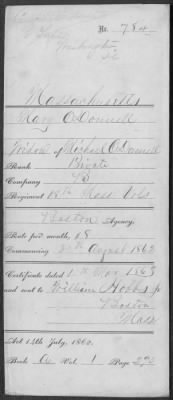 No. 784
Washington
Massachusetts
Mary O'Donnell
Widow of Michael O'Donnell
Rank Private
Company
Regiment 18th Mass Vols
Boston Agency.
Rate per month, $8
Commencing August 1862
Certificate dated 1st May 1863
and sent to William Hobbs Jr
Boston
Mass
Act 14th July, 1862.
Book Vol. 1 Page